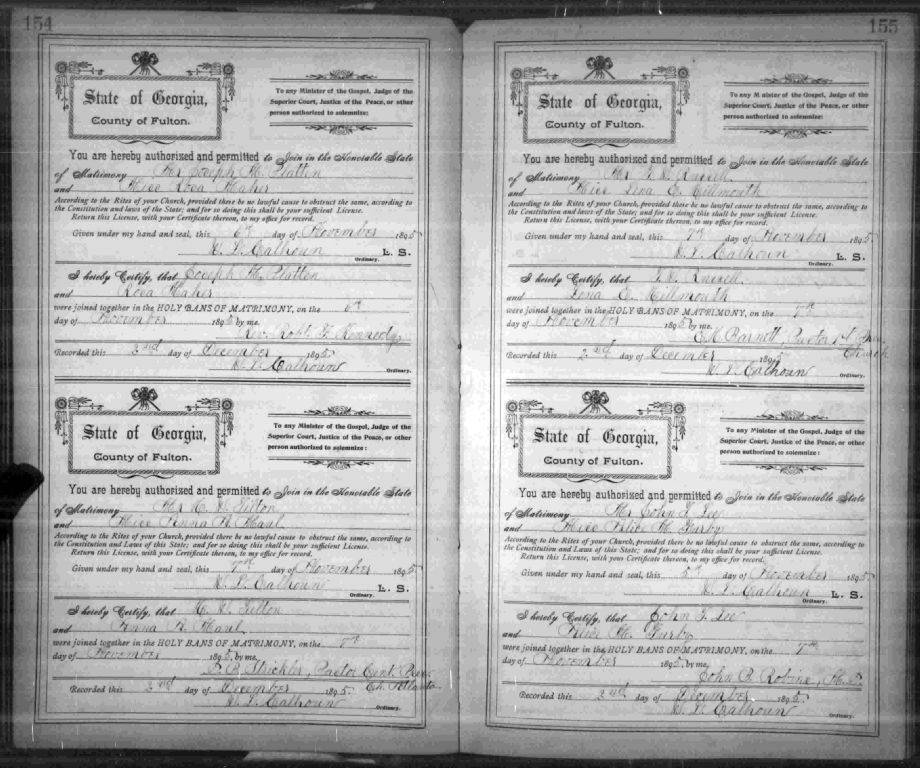 154
State of Georgia,
County of Fulton.
To any Minister of the Gospel, Judge of the
Superior Court, Justice of the Peace, or other
person authorized to solemnize:
You are hereby authorized and permitted to Join in the Honorable State
of Matrimony Mr Joseph H. Platten
and Miss Rosa Maher
According to the Rites of your Church, provided there be no lawful cause to obstruct the same, according to
the Constitution and laws of this State; and for so doing this shall be your sufficient License.
Return this License, with your Certificate thereon, to my office for record.
Given under my hand and seal, this 6th day of November 1895
W. L. Calhoun L. S.
Ordinary.
I hereby Certify, that Joseph H. Platten
and Rosa Maher
were joined together in the HOLY BANS OF MATRIMONY, on the 6th
day of November 1895 by me.
Rev. Robt. F. Kennedy
Recorded this 2nd day of December 1895
W. L. Calhoun
Ordinary.
State of Georgia,
County of Fulton.
To any Minister of the Gospel, Judge of the
Superior Court, Justice of the Peace, or other
person authorized to solemnize:
You are hereby authorized and permitted to Join in the Honorable State
of Matrimony Mr
and Miss Anna
According to the Rites of your Church, provided there be no lawful cause to obstruct the same, according to
the Constitution and Laws of this State; and for so doing this shall be your sufficient License.
Return this License, with your Certificate thereon, to my office for record.
Given under my hand and seal, this 7th day of November 1895
W. L. Calhoun L. S.
Ordinary.
I hereby Certify, that
and Anna
were joined together in the HOLY BANS OF MATRIMONY, on the
day of November 1895 by me,
Strickler, Pastor Cent. Pres.
Ch. Atlanta
Recorded this 2nd day of December 1895
W. L. Calhoun
Ordinary.
155
State of Georgia,
County of Fulton.
To any Minister of the Gospel, Judge of the
Superior Court, Justice of the Peace, or other
person authorized to solemnize:
You are hereby authorized and permitted to Join in the Honorable State
of Matrimony Mr Russell
and Miss Lena E.
According to the Rites of your Church, provided there be no lawful cause to obstruct the same, according to
the Constitution and laws of the State; and for so doing this shall be your sufficient License.
Return this License, with your Certificate thereon, to my office for record.
Given under my hand and seal, this 7th day of November 1895
W. L. Calhoun L. S.
Ordinary.
I hereby Certify, that Russell
and Lena E.
were joined together in the HOLY BANS OF MATRIMONY, on the 7th
day of November 1895 by me.
E. H. Barnett, Pastor 1st Pres.
Church
Recorded this 2nd day of December 1895
W. L. Calhoun
Ordinary.
State of Georgia,
County of Fulton.
To any Minister of the Gospel, Judge of the
Superior Court, Justice of the Peace, or other
person authorized to solemnize:
You are hereby authorized and permitted to Join in the Honorable State
of Matrimony Mr John F. Lee
and Miss Alice M. Furby
According to the Rites of your Church, provided there be no lawful cause to obstruct the same, according to
the Constitution and Laws of this State; and for so doing this shall be your sufficient License.
Return this License, with your Certificate thereon, to my office for record.
Given under my hand and seal, this 5th day of November 1895
W. L. Calhoun L. S.
Ordinary.
I hereby Certify, that John F. Lee
and Alice M. Furby
were joined together in the HOLY BANS OF MATRIMONY, on the 7th
day of November 1895 by me,
John B. Robins,
Recorded this 2nd day of December 1895
W. L. Calhoun
Ordinary.